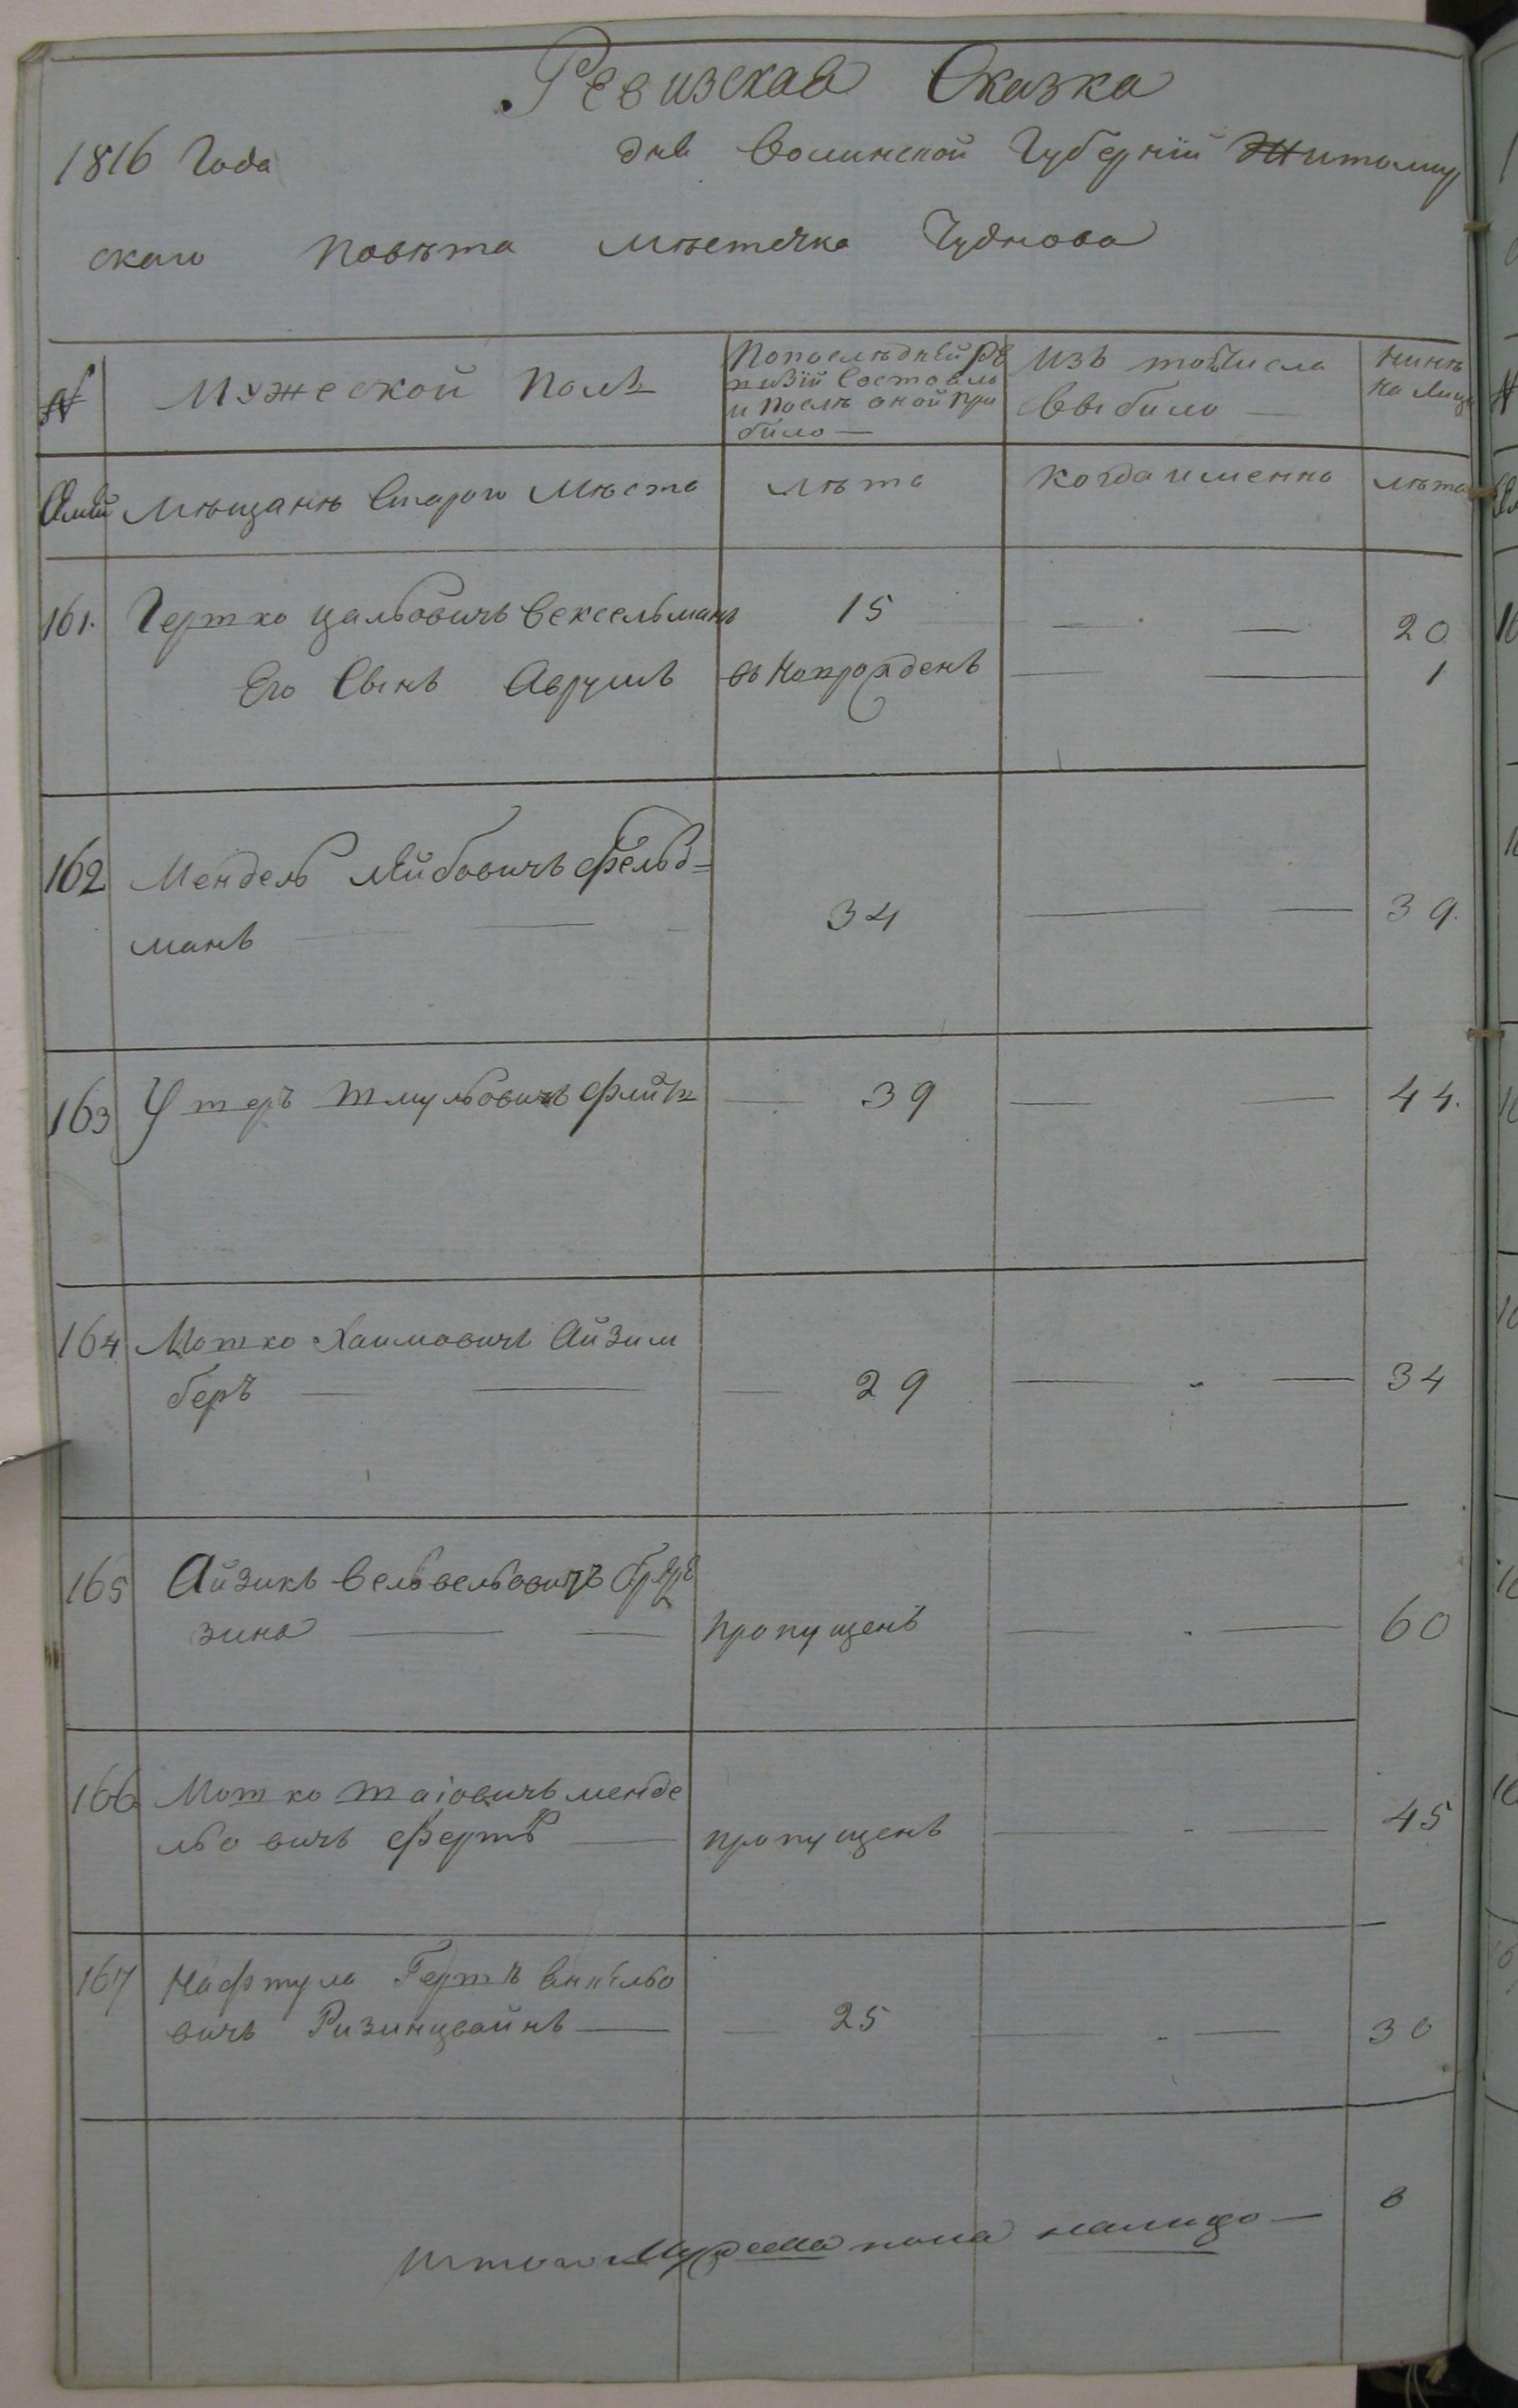 Ревизская Сказка
1816 Года дня Волинской Губернїи Житомир
скаго Повѣта мѣстечка Чуднова
№ Мужеской Полъ Попослѣдней Ре Изъ того Числа Нинѣ
визїи Состояло на Лицо
и послѣ оной При Выбило —
било —
Мѣщанѣ Стараго Мѣста лѣта когда именно лѣта
161. Гершко цальовичъ Вексельманъ 15 20
Его Сынъ Аврумъ въ Новорожденъ 1
162 Мендель Лейбовичъ Фельд=
манъ 34 39.
163 Ушеръ Шмульовичъ 39 44.
164 Мошко Хаимовичъ Айзим
беръ 29 34
165 Айзикъ Вельвельовичъ
зина пропущенъ 60
166 Мошко шаіовичъ менде
льовичъ Фертъ пропущенъ 45
167 Нафтула Гершъ
вичъ Ризинцвайнъ 25 30
Итого Мужеска пола налицо — 8